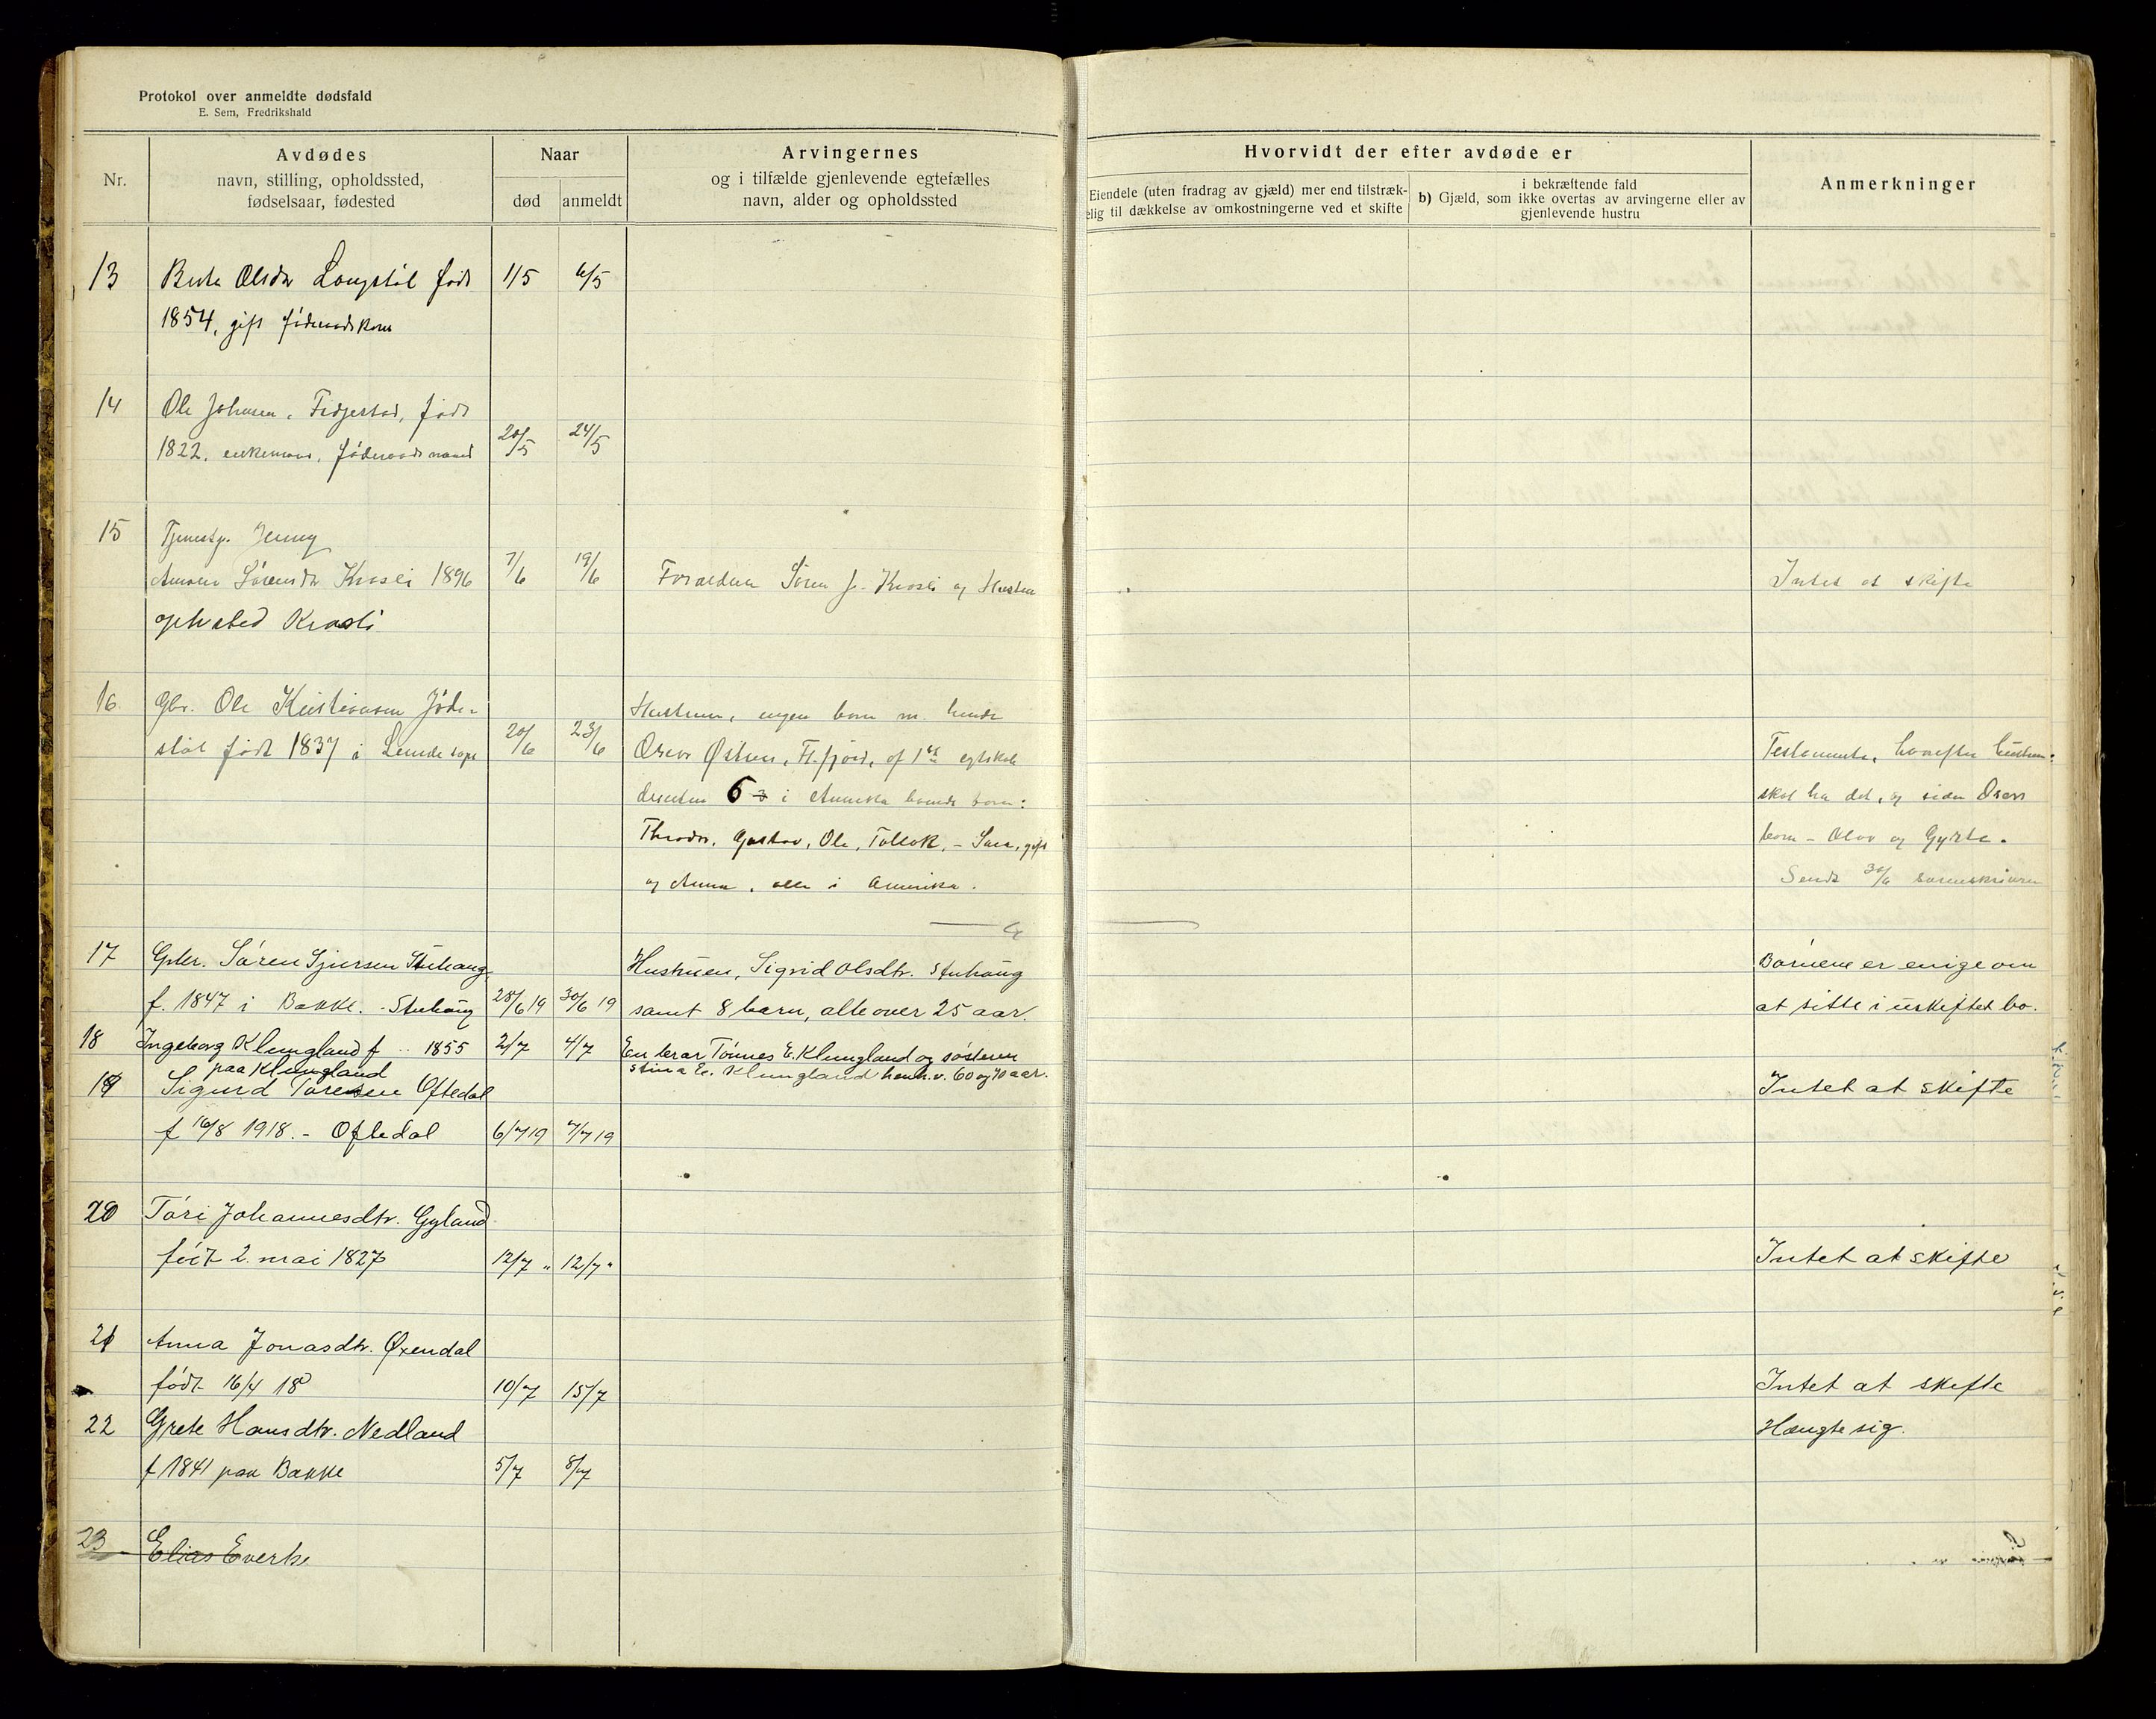 Protokol over anmeldte dødsfald
E. Sem, Fredrikshald
Nr.
Avdødes
navn, stilling, opholdssted,
fødselsaar, fødested
Naar
død
anmeldt
Arvingernes
og i tilfælde gjenlevende egtefælles
navn, alder og opholdssted
Hvorvidt der efter avdøde er
Eiendele (uten fradrag av gjæld) mer end tilstræk-
elig til dækkelse av omkostningerne ved et skifte
i bekræftende fald
b) Gjæld, som ikke overtas av arvingerne eller av
gjenlevende hustru
Anmerkninger
13 Berte Olsdtr Longstöl født 1/5 6/5
1854, gift föderaadskone
14 Ole Johnsen, Fidjestad, født
1822, enkemand, föderaadsmand 20/5 24/5
15 Tjenestp. Jenny
Amanda Sörensdtr Kvasli 1896 7/6 19/6 Forældrene Sören J. Kvasli og Hustru Intet at skifte
opholdssted Kvasli
16 Gbr. Ole Kristiansen Jöde- Hustruen, ingen born m. hende
stöl født 1837 i Lunde sogn 20/6 23/6 Østen, Fl.fjord, af 1ste egteskab Testamente, hvorefter hustruen
desuten 6 3 i Amerika boende born: skal ha det, og siden
Theodor, Gustav, Ole, Tallak, - Sara, gift born - Olav og Gyrte.
og Anna, alle i Amerika. Sendt 30/6 sorenskriveren
17 Gbr. Sören Sjursen Stuhaug Hustruen, Sigrid Olsdtr. Stuhaug Börnene er enige om
f. 1847 i Bakke. - Stuhaug 28/6 19 30/6 19 samt 8 barn, alle over 25 aar. at sitte i uskiftet bo.
18 Ingeborg Klungland f .. 1855 2/7 4/7 En bror Tönnes E. Klungland og søsteren
paa Klungland Stina E. Klungland henh.v. 60 og 70 aar.
19 Sigurd Toresen Oftedal Intet at skifte
f 16/8 1918. - Oftedal 6/7 19 7/7 19
20 Töri Johannesdtr. Gyland
født 2. mai 1827 12/7 " 12/7 " Intet at skifte
21 Anna Jonasdtr. Øxendal
født 16/4 18 10/7 15/7 Intet at skifte
22 Grete Hansdtr. Nedland Hængte sig.
f 1841 paa Bakke 5/7 8/7
23 Elias Everts